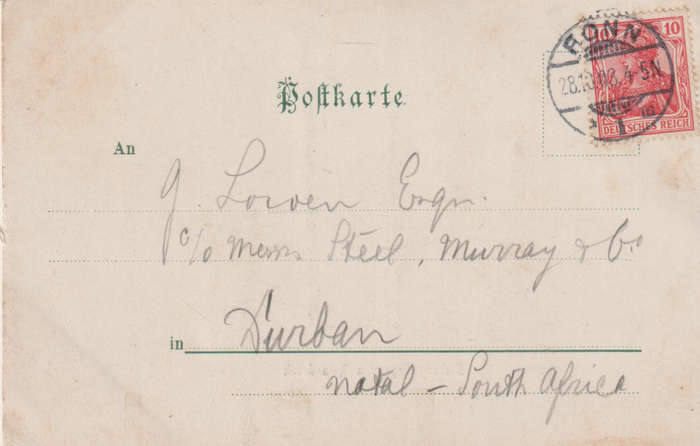 10
BONN
28.10.03.4-5N
1 m
DEUTSCHES REICH
Postkarte
An
J. Lowen Esqr.
c/o Messrs Steel, Murray & Co
in Durban
Natal – South Africa